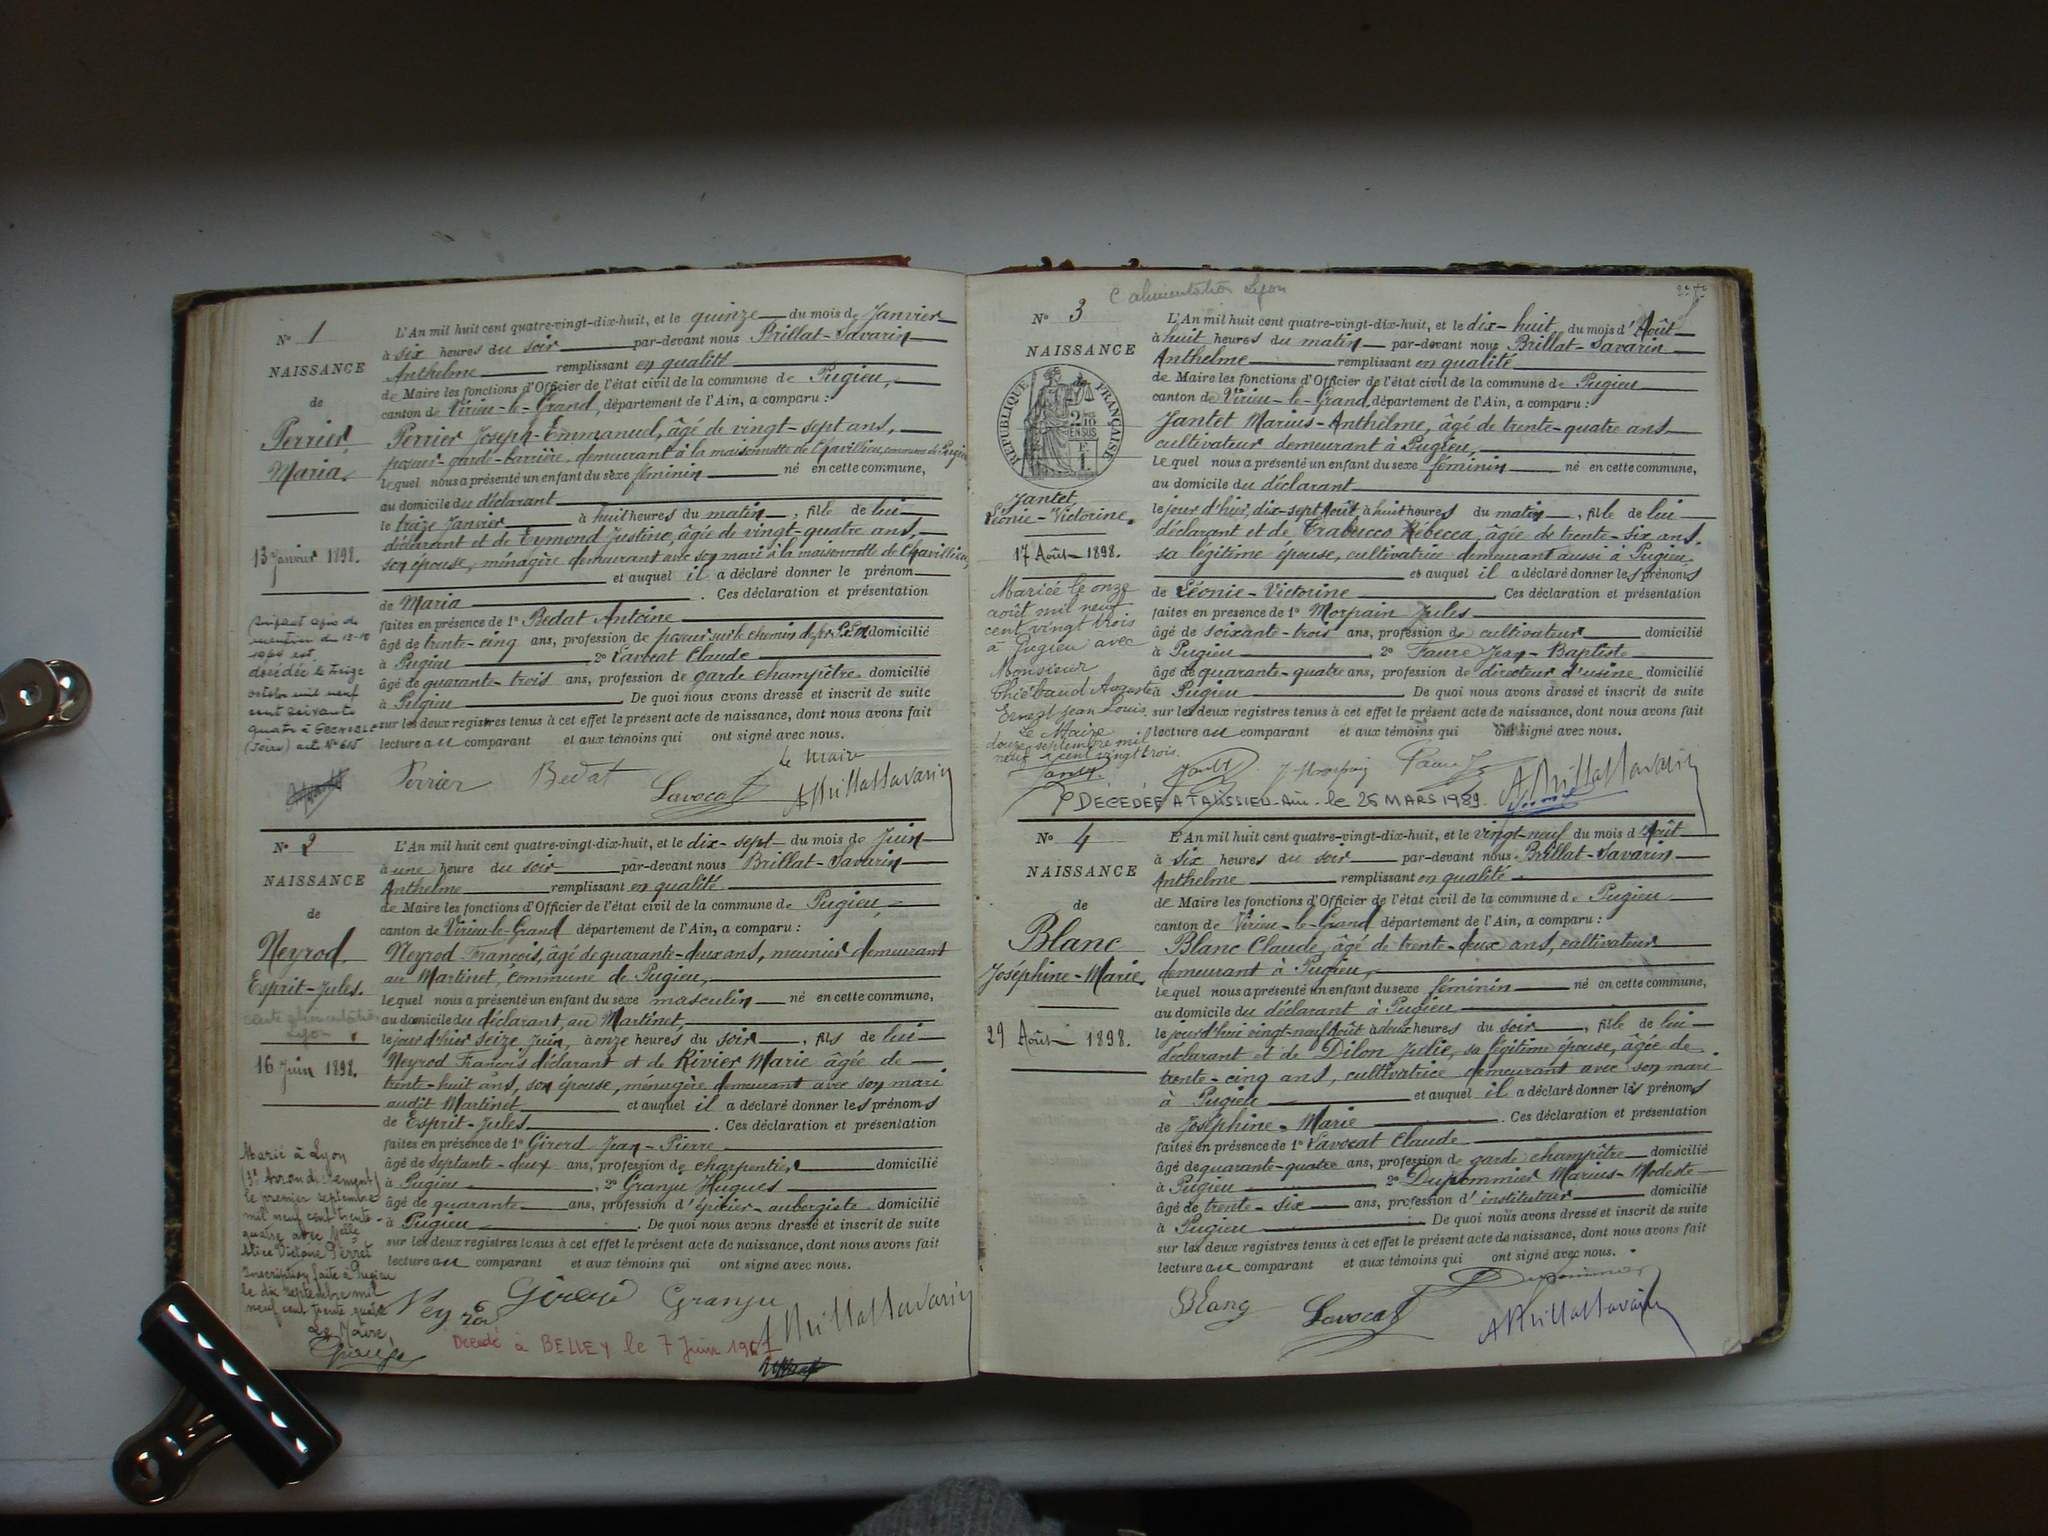 N° 1
NAISSANCE
de
Perrier
Maria.
13 Janvier 1898.
décédée le treize
octobre mil neuf
cent soixante
quatre à GRENOBLE
(Isère) acte N° 615
L'An mil huit cent quatre-vingt-dix-huit, et le quinze du mois de Janvier
à six heures du soir par-devant nous Brillat-Savarin
Anthelme remplissant en qualité
de Maire les fonctions d'Officier de l'état civil de la commune de Pugieu,
canton de Virieu-le-Grand, département de l'Ain, a comparu :
Perrier Joseph-Emmanuel, âgé de vingt-sept ans,
poseur-garde-barrière, demeurant à la maisonnette de Chavillieu, commune de Pugieu
lequel nous a présenté un enfant du sexe féminin né en cette commune,
au domicile du déclarant
le treize Janvier à huit heures du matin, fille de lui
déclarant et de Eymond Justine, âgée de vingt-quatre ans,
son épouse, ménagère demeurant avec son mari à la maisonnette de Chavillieu,
et auquel il a déclaré donner le prénom
de Maria. Ces déclaration et présentation
faites en présence de 1° Bedat Antoine
âgé de trente-cinq ans, profession de poseur sur le chemin de fer P.L.M. domicilié
à Pugieu, 2° Lavocat Claude
âgé de quarante-trois ans, profession de garde champêtre domicilié
à Pugieu. De quoi nous avons dressé et inscrit de suite
sur les deux registres tenus à cet effet le présent acte de naissance, dont nous avons fait
lecture au comparant et aux témoins qui ont signé avec nous.
Le Maire
Perrier Bedat Lavocat ABrillatSavarin
N° 2
NAISSANCE
de
Neyrod
Esprit-Jules.
Lyon
16 Juin 1898.
Marié à Lyon
(3e Arrondissement)
le premier septembre
mil neuf cent trente-
quatre avec Melle
Perret
Inscription faite à Pugieu
le dix septembre mil
neuf cent trente quatre
Le Maire,
L'An mil huit cent quatre-vingt-dix-huit, et le dix-sept du mois de Juin
à une heure du soir par-devant nous Brillat-Savarin
Anthelme remplissant en qualité
de Maire les fonctions d'Officier de l'état civil de la commune de Pugieu,
canton de Virieu-le-Grand département de l'Ain, a comparu :
Neyrod François, âgé de quarante-deux ans, meunier demeurant
au Martinet, commune de Pugieu,
lequel nous a présenté un enfant du sexe masculin né en cette commune,
au domicile du déclarant, au Martinet,
le jour d'hier seize Juin, à onze heures du soir, fils de lui
Neyrod François déclarant et de Rivier Marie âgée de
trente-huit ans, son épouse, ménagère demeurant avec son mari
audit Martinet et auquel il a déclaré donner les prénoms
de Esprit-Jules. Ces déclaration et présentation
faites en présence de 1° Girerd Jean-Pierre
âgé de septante-deux ans, profession de charpentier domicilié
à Pugieu, 2° Granju Hugues
âgé de quarante ans, profession d'épicier-aubergiste domicilié
à Pugieu. De quoi nous avons dressé et inscrit de suite
sur les deux registres tenus à cet effet le présent acte de naissance, dont nous avons fait
lecture au comparant et aux témoins qui ont signé avec nous.
Neyrod Girerd Granju ABrillatSavarin
Décédé à BELLEY le 7 Juin 1967
C alimentation Lyon
N° 3
NAISSANCE
RÉPUBLIQUE FRANÇAISE
Jantet,
Léonie-Victorine.
17 Août 1898.
Mariée le onze
août mil neuf
cent vingt trois
à Pugieu avec
Monsieur
Thiébaud Auguste
Ernest Jean Louis.
Le Maire
douze septembre mil
neuf cent vingt trois.
L'An mil huit cent quatre-vingt-dix-huit, et le dix-huit du mois d'Août
à huit heures du matin par-devant nous Brillat-Savarin
Anthelme remplissant en qualité
de Maire les fonctions d'Officier de l'état civil de la commune de Pugieu
canton de Virieu-le-Grand, département de l'Ain, a comparu :
Jantet Marius-Anthelme, âgé de trente-quatre ans,
cultivateur demeurant à Pugieu,
lequel nous a présenté un enfant du sexe féminin né en cette commune,
au domicile du déclarant
le jour d'hier, dix-sept Août, à huit heures du matin, fille de lui
déclarant et de Trabucco Rébecca, âgée de trente-six ans,
sa légitime épouse, cultivatrice demeurant aussi à Pugieu,
et auquel il a déclaré donner les prénoms
de Léonie-Victorine. Ces déclaration et présentation
faites en présence de 1° Morpain Jules
âgé de soixante-trois ans, profession de cultivateur domicilié
à Pugieu, 2° Faure Jean-Baptiste
âgé de quarante-quatre ans, profession de directeur d'usine domicilié
à Pugieu. De quoi nous avons dressé et inscrit de suite
sur les deux registres tenus à cet effet le présent acte de naissance, dont nous avons fait
lecture au comparant et aux témoins qui ont signé avec nous.
ABrillatSavarin
DÉCÉDÉE A TALISSIEU-Ain - le 26 MARS 1989.
N° 4
NAISSANCE
de
Blanc
Joséphine-Marie.
29 Août 1898.
L'An mil huit cent quatre-vingt-dix-huit, et le vingt-neuf du mois d'Août
à six heures du soir par-devant nous Brillat-Savarin
Anthelme remplissant en qualité
de Maire les fonctions d'Officier de l'état civil de la commune de Pugieu
canton de Virieu-le-Grand département de l'Ain, a comparu :
Blanc Claude, âgé de trente-deux ans, cultivateur
demeurant à Pugieu,
lequel nous a présenté un enfant du sexe féminin né en cette commune,
au domicile du déclarant à Pugieu
le jourd'hui vingt-neuf Août à deux heures du soir, fille de lui
déclarant et de Dilon Julie, sa légitime épouse, âgée de
trente-cinq ans, cultivatrice demeurant avec son mari
à Pugieu et auquel il a déclaré donner les prénoms
de Joséphine-Marie. Ces déclaration et présentation
faites en présence de 1° Lavocat Claude
âgé de quarante-quatre ans, profession de garde champêtre domicilié
à Pugieu, 2° Dupommier Marius-Modeste
âgé de trente-six ans, profession d'instituteur domicilié
à Pugieu. De quoi nous avons dressé et inscrit de suite
sur les deux registres tenus à cet effet le présent acte de naissance, dont nous avons fait
lecture au comparant et aux témoins qui ont signé avec nous.
Dupommier
Blanc Lavocat ABrillatSavarin